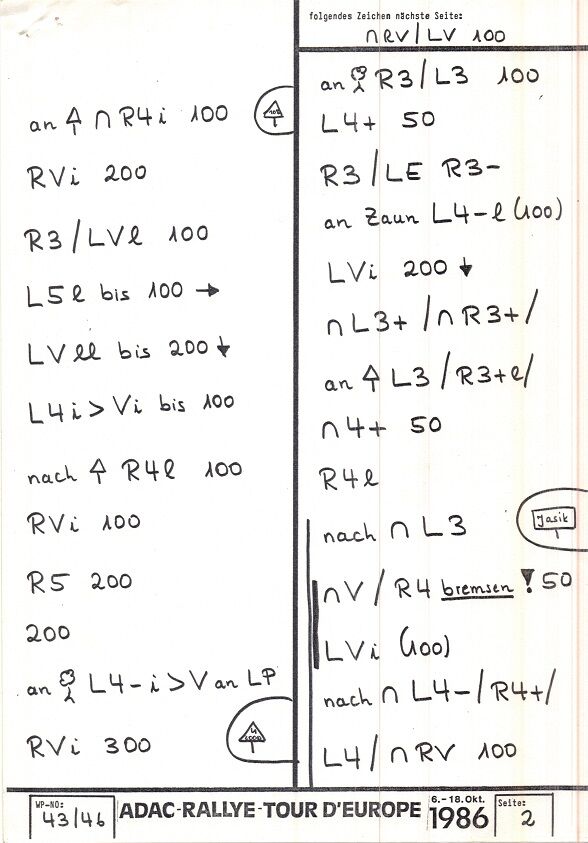 folgendes Zeichen nächste Seite:
∩ RV/LV 100
an ∩ R4i 100
RVi 200
R3/LVl 100
L5l bis 100 →
LVll bis 200 ↓
L4i>Vi bis 100
nach R4l 100
RVi 100
R5 200
200
an L4-i>V an LP
RVi 300
an R3/L3 100
L4+ 50
R3/LE R3-
an Zaun L4-l (100)
LVi 200 ↓
∩ L3+/∩R3+/
an L3/R3+l/
∩ 4+ 50
R4l
nach ∩ L3
Jasik
∩V/R4 bremsen ! 50
LVi (100)
nach ∩ L4-/R4+/
L4/∩ RV 100
WP-NO:
43/46
ADAC-RALLYE-TOUR D'EUROPE
6.-18.Okt.
1986
Seite:
2